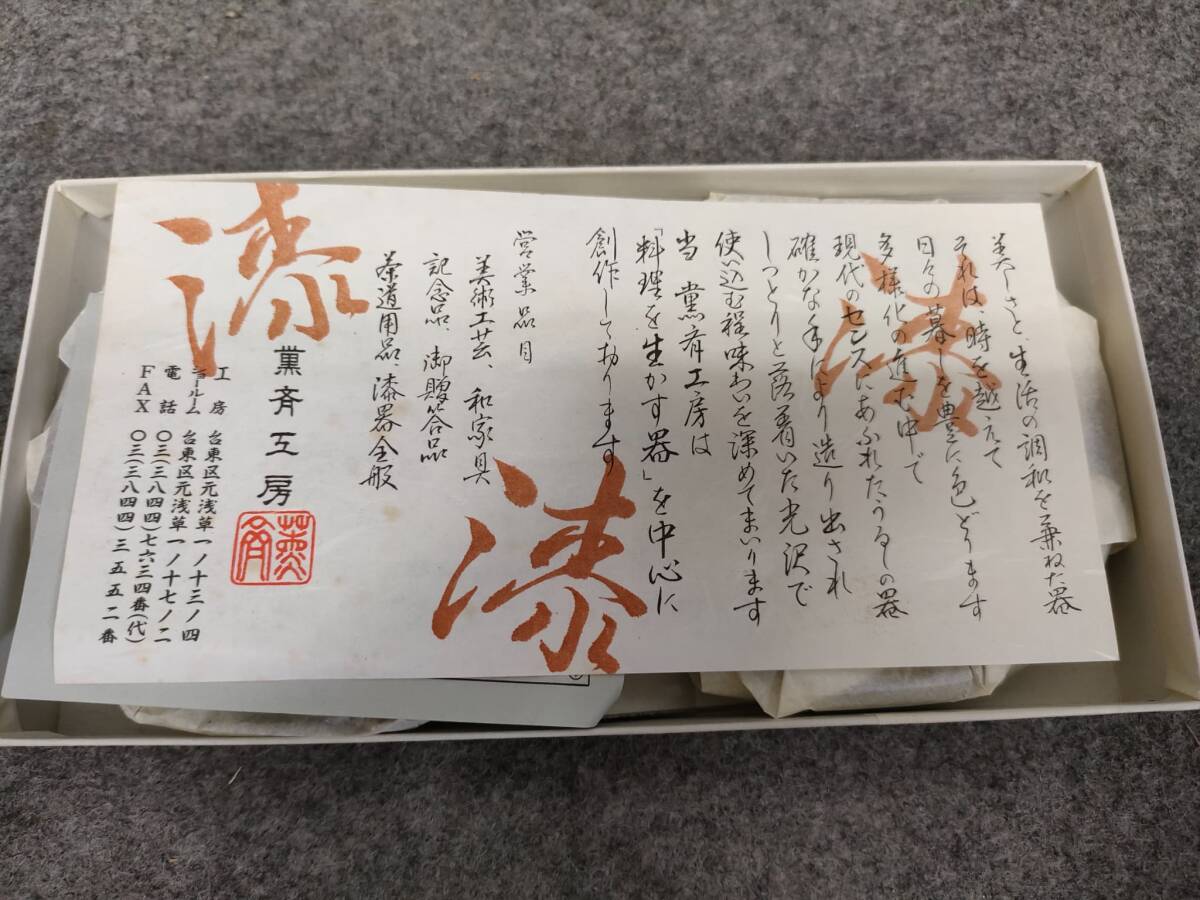 美しさと、生活の調和を兼ねた器
それは、時を越えて
日々の暮しを豊に色どります
多様化の進む中で
現代のセンスにあふれたうるしの器
確かな手により造り出され
しっとりと落着いた光沢で
使い込む程味わいを深めてまいります
当 薫斉工房は
「料理を生かす器」を中心に
創作しております
営業品目
美術工芸、和家具
記念品、御贈答品
茶道用品、漆器全般
漆
漆
漆
薫斉工房
薫斉
工房 台東区元浅草一ノ十三ノ四
ショールーム 台東区元浅草一ノ十七ノ二
電話 〇三(三八四四)七六三四番(代)
FAX 〇三(三八四四)三五五二番